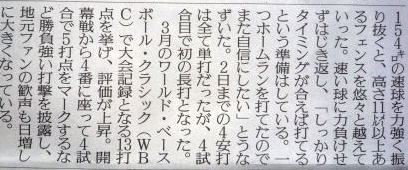 154㌔の速球を力強く振
り抜くと、高さ11㍍以上あ
るフェンスを悠々と越えて
いった。速い球に力負けせ
ずはじき返し、「しっかり
タイミングが合えば打てる
という準備はしている。一
つホームランを打てたので
また自信にしたい」とうな
ずいた。2日までの4安打
は全て単打だったが、4試
合目で初の長打となった。
3月のワールド・ベース
ボール・クラシック（WB
C）で大会記録となる13打
点を挙げ、評価が上昇。開
幕戦から4番に座って4試
合で5打点をマークするな
ど勝負強い打撃を披露し、
地元ファンの歓声も日増し
に大きくなっている。